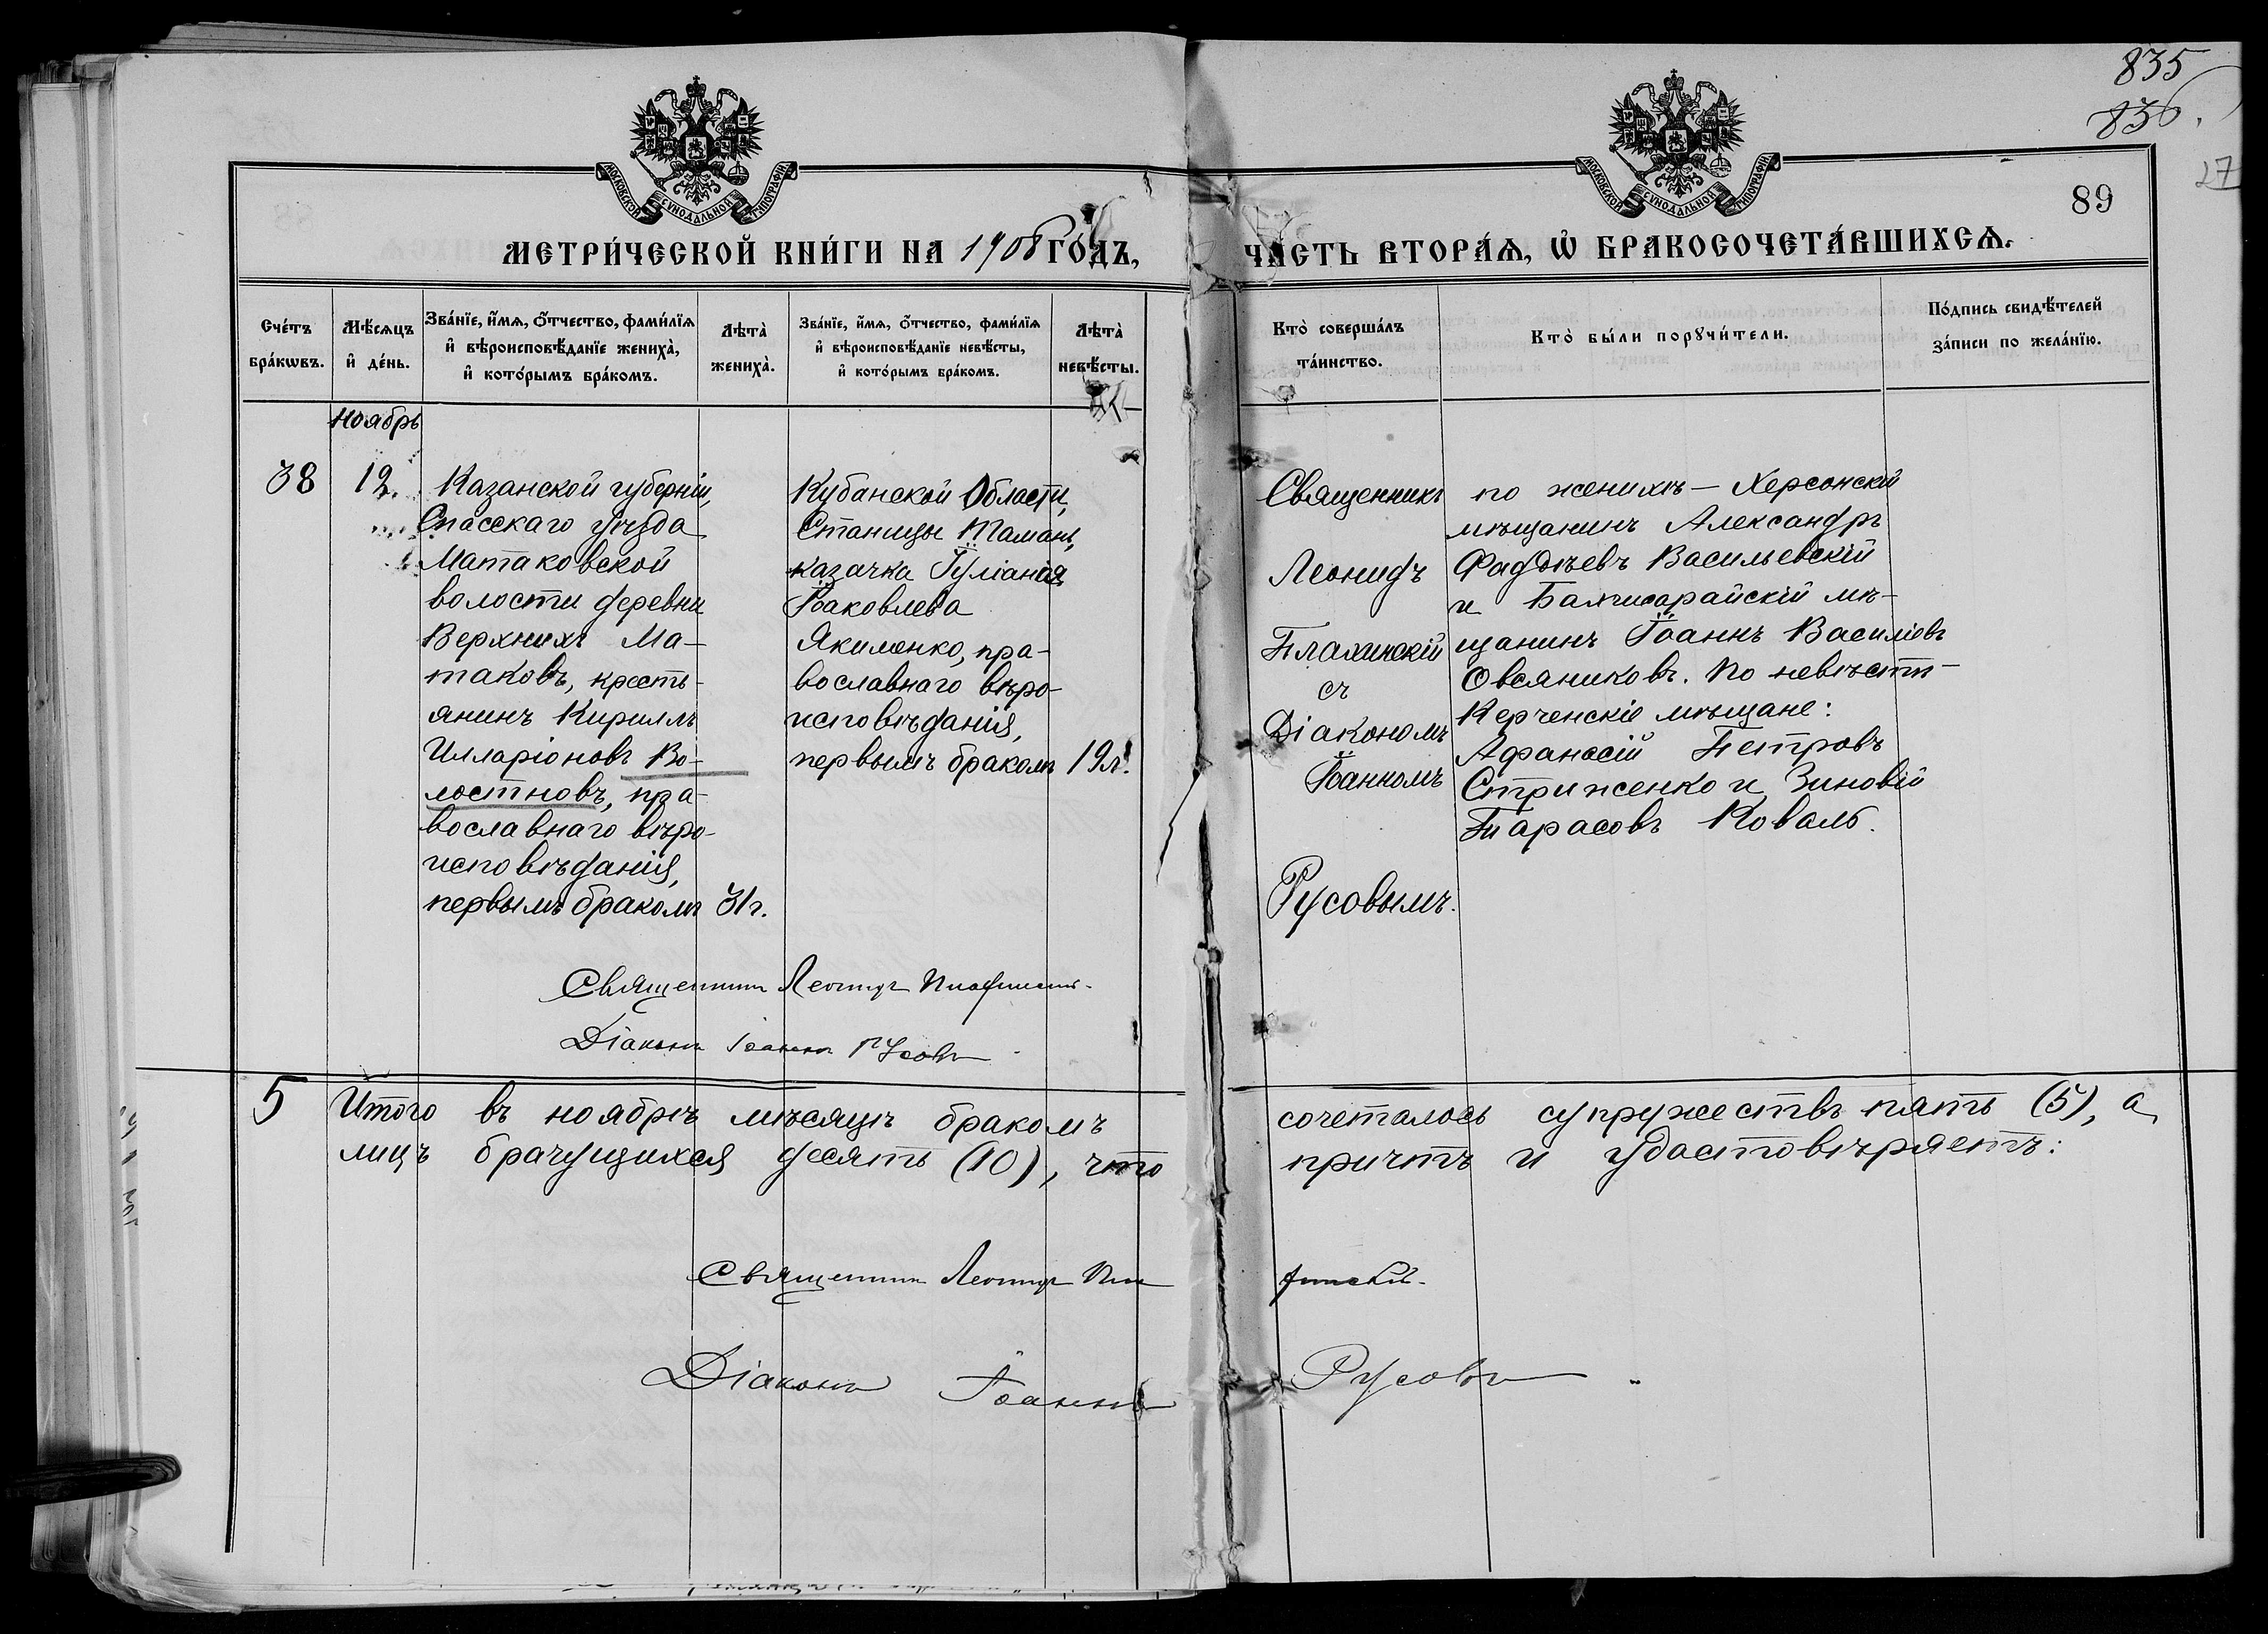 835
836.
27
89
МОСКОВСКОЙ СѴНОДАЛЬНОЙ ТИПОГРАФІИ
МОСКОВСКОЙ СѴНОДАЛЬНОЙ ТИПОГРАФІИ
МЕТРИ́ЧЕСКОЙ КНИ́ГИ НА 1908 ГО́ДЪ,
ЧА́СТЬ ВТОРА́Ѧ, Ѡ҆ БРАКОСОЧЕТА́ВШИХСѦ.
Сче́тъ бра́кѡвъ.
Мѣ́сѧцъ и҆ де́нь.
Зва́нїе, и҆́мѧ, ѻ҆́тчество, фами́лїѧ
и҆ вѣроисповѣ́данїе жениха̀,
и҆ кото́рымъ бра́комъ.
Лѣта̀ жениха̀.
Зва́нїе, и҆́мѧ, ѻ҆́тчество, фами́лїѧ
и҆ вѣроисповѣ́данїе невѣ́сты,
и҆ кото́рымъ бра́комъ.
Лѣта̀ невѣ́сты.
Кто̀ соверша́лъ
та́инство.
Кто̀ бы́ли порꙋчи́тели.
По́дпись свидѣ́телей
за́писи по жела́нїю.
Ноябрь
38
12.
Казанской губерніи,
Спасскаго уѣзда
Матаковской
волости деревни
Верхнихъ Ма-
таковъ, кресть-
янинъ Кириллъ
Илларіоновъ Во-
лостновъ, пра-
вославнаго вѣро-
исповѣданія,
первымъ бракомъ
31г.
Кубанской Области,
Станицы Тамань,
казачка Іуліанія
Іаковлева
Якименко, пра-
вославнаго вѣро-
исповѣданія,
первымъ бракомъ
19л.
Священникъ
Леонидъ
съ
Діакономъ
Іоанномъ
Русовымъ.
по женихѣ — Херсонскій
мѣщанинъ Александръ
Фаддѣевъ Васильевскій
и Бахчисарайскій мѣ-
щанинъ Іоаннъ Василіевъ
Овсяниковъ. По невѣстѣ —
Керченскіе мѣщане:
Афанасій Петровъ
Стриженко и Зиновій
Тарасовъ Коваль.
Священникъ Леонидъ
Діаконъ Іоаннъ Русовъ
5
Итого въ ноябрѣ мѣсяцѣ бракомъ сочеталось супружествъ пять (5), а
лицъ брачущихся десять (10), что причтъ и удостовѣряетъ:
Священникъ Леонидъ
Діаконъ Іоаннъ Русовъ